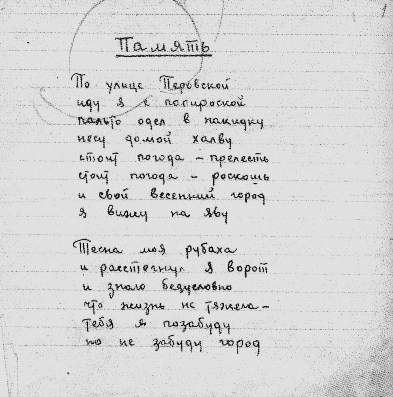 Память
По улице Перовской
иду я с папироской
пальто одел в накидку
несу домой халву
стоит погода – прелесть
стоит погода – роскошь
и свой весенний город
я вижу на яву
Тесна моя рубаха
и расстегнул я ворот
и знаю безусловно
что жизнь не тяжела –
тебя я позабуду
но не забуду город